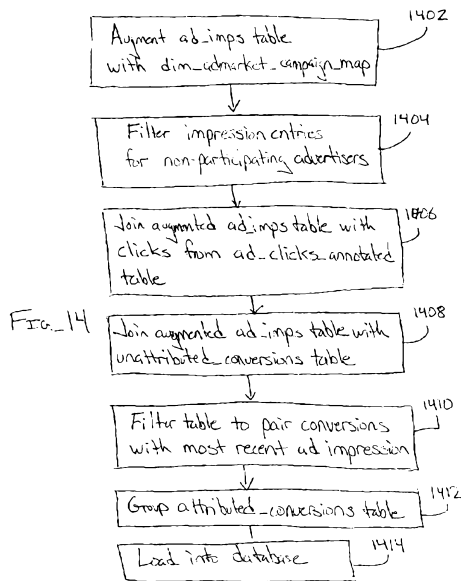 Augment ad_imps table
with dim_admarket_campaign_map
1402
Filter impression entries
for non-participating advertisers
1404
Join augmented ad_imps table with
clicks from ad_clicks_annotated
table
1406
FIG_14
Join augmented ad_imps table with
unattributed_conversions table
1408
Filter table to pair conversions
with most recent ad impression
1410
Group attributed_conversions table
1412
Load into database
1414